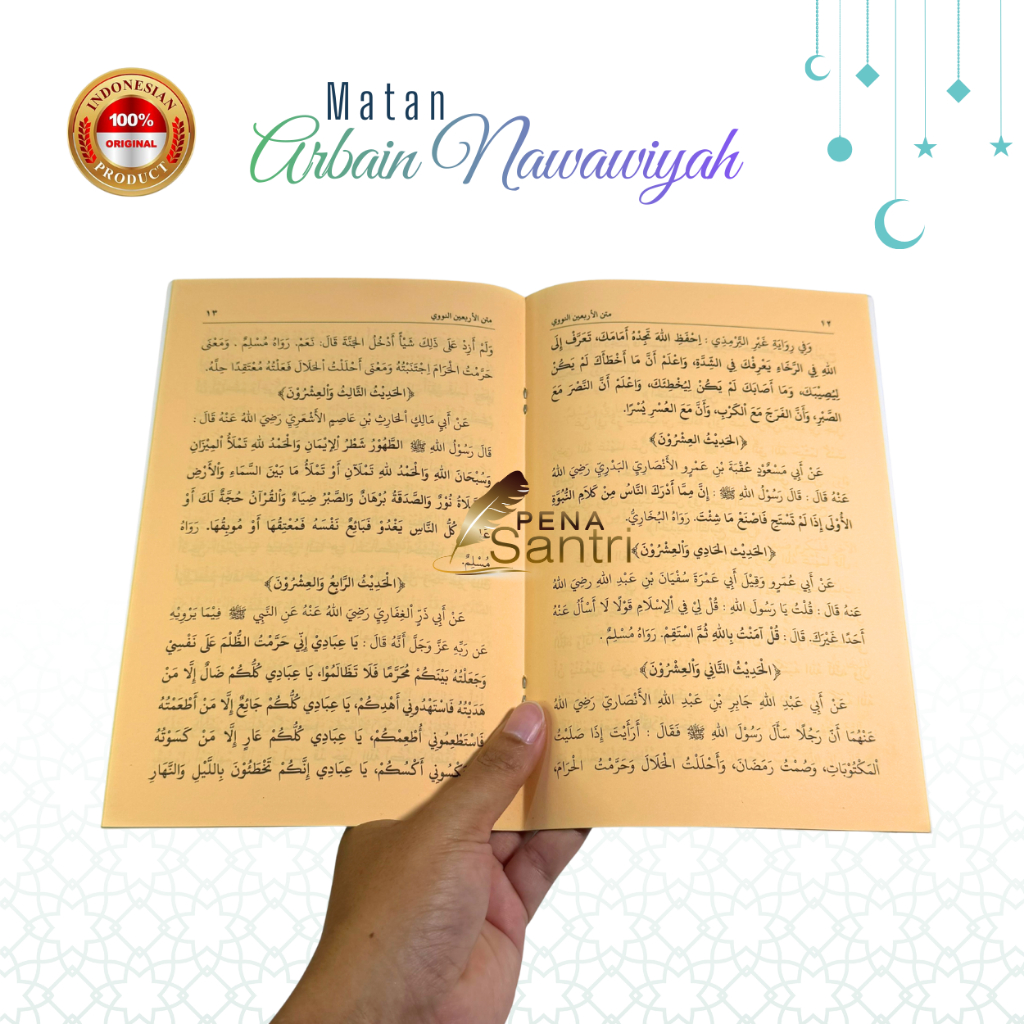 INDONESIAN
100%
ORIGINAL
PRODUCT
Matan
Arbain Nawawiyah
١٢
متن الأربعين النووي
وَفِي رِوَايَةِ غَيْرِ التِّرْمِذِي : اِحْفَظِ اللهَ تَجِدْهُ أَمَامَكَ، تَعَرَّفْ إِلَى
اللهِ فِي الرَّخَاءِ يَعْرِفْكَ فِي الشِّدَّةِ، وَاعْلَمْ أَنَّ مَا أَخْطَأَكَ لَمْ يَكُنْ
لِيُصِيْبَكَ، وَمَا أَصَابَكَ لَمْ يَكُنْ لِيُخْطِئَكَ، وَاعْلَمْ أَنَّ النَّصْرَ مَعَ
الصَّبْرِ، وَأَنَّ الفَرَجَ مَعَ الْكَرْبِ، وَأَنَّ مَعَ العُسْرِ يُسْرًا.
﴿الحَدِيْثُ العِشْرُوْنَ﴾
عَنْ أَبِي مَسْعُوْدٍ عُقْبَةَ بْنِ عَمْرٍو الأَنْصَارِيِّ البَدْرِيِّ رَضِيَ اللهُ
عَنْهُ قَالَ : قَالَ رَسُوْلُ اللهِ ﷺ : إِنَّ مِمَّا أَدْرَكَ النَّاسُ مِنْ كَلَامِ النُّبُوَّةِ
الأُوْلَى إِذَا لَمْ تَسْتَحِ فَاصْنَعْ مَا شِئْتَ. رَوَاهُ البُخَارِيُّ.
﴿الحَدِيْث الحَادِي وَالْعِشْرُوْنَ﴾
عَنْ أَبِي عُمَرٍو وَقِيْلَ أَبِي عَمْرَةَ سُفْيَانَ بْنِ عَبْدِ اللهِ رَضِيَ اللهُ
عَنهُ قَالَ : قُلْتُ يَا رَسُولَ اللهِ : قُلْ لِيْ فِي الْإِسْلَامِ قَوْلًا لَا أَسْأَل عَنْهُ
أَحَدًا غَيْرَكَ. قَالَ : قُلْ آمَنْتُ بِاللهِ ثُمَّ اسْتَقِمْ. رَوَاهُ مُسْلِمٌ .
﴿الْحَدِيْثُ الثَّانِي وَالْعِشْرُوْنَ﴾
عَنْ أَبِي عَبْدِ اللهِ جَابِرِ بْنِ عَبْدِ اللهِ الأَنْصَارِيِّ رَضِيَ اللهُ
عَنْهُمَا أَنَّ رَجُلًا سَأَلَ رَسُوْلَ اللهِ ﷺ فَقَالَ : أَرَأَيْتَ إِذَا صَلَّيْتُ
الْمَكْتُوْبَاتِ، وَصُمْتُ رَمَضَانَ، وَأَحْلَلْتُ الْحَلَالَ وَحَرَّمْتُ الْحَرَامَ،
متن الأربعين النووي
١٣
وَلَمْ أَزِدْ عَلَى ذَلِكَ شَيْأً أَدْخُلُ الجَنَّةَ قَالَ: نَعَمْ. رَوَاهُ مُسْلِمٌ . وَمَعْنَى
حَرَّمْتُ الْحَرَامَ اِجْتَنَبْتُهُ وَمَعْنَى أَحْلَلْتُ الْحَلَالَ فَعَلْتُهُ مُعْتَقِدًا حِلَّهُ.
﴿الحَدِيْثُ الثَّالِثُ وَالعِشْرُوْنَ﴾
عَنْ أَبِي مَالِكٍ الْحَارِثِ بْنِ عَاصِمٍ الأَشْعَرِيِّ رَضِيَ اللهُ عَنْهُ قَالَ :
قَالَ رَسُوْلُ اللهِ ﷺ الطَّهُوْرُ شَطْرُ الْإِيْمَانِ وَالْحَمْدُ للهِ تَمْلَأُ المِيْزَانَ
وَسُبْحَانَ اللهِ وَالْحَمْدُ للهِ تَمْلَآنِ أَوْ تَمْلَأُ مَا بَيْنَ السَّمَاءِ وَالْأَرْضِ
نُوْرٌ وَالصَّدَقَةُ بُرْهَانٌ وَالصَّبْرُ ضِيَاءٌ وَالْقُرْآنُ حُجَّةٌ لَكَ أَوْ
كُلُّ النَّاسِ يَغْدُوْ فَبَائِعٌ نَفْسَهُ فَمُعْتِقُهَا أَوْ مُوبِقُهَا. رَوَاهُ
مُسْلِمٌ.
﴿الْحَدِيْثُ الرَّابِعُ وَالعِشْرُوْنَ﴾
عَنْ أَبِي ذَرٍّ الْغِفَارِيِّ رَضِيَ اللهُ عَنْهُ عَنِ النَّبِي ﷺ فِيْمَا يَرْوِيْهِ
عَن رَبِّهِ عَزَّ وَجَلَّ أَنَّهُ قَالَ : يَا عِبَادِيْ إِنِّي حَرَّمْتُ الظُّلْمَ عَلَى نَفْسِيْ
وَجَعَلْتُهُ بَيْنَكُمْ مُحَرَّمًا فَلَا تَظَالَمُوْا، يَا عِبَادِي كُلُّكُمْ ضَالٌّ إِلَّا مَنْ
هَدَيْتُهُ فَاسْتَهْدُونِي أَهْدِكُمْ، يَا عِبَادِي كُلُّكُمْ جَائِعٌ إِلَّا مَنْ أَطْعَمْتُهُ
فَاسْتَطْعِمُونِي أُطْعِمْكُمْ، يَا عِبَادِي كُلُّكُمْ عَارٍ إِلَّا مَنْ كَسَوْتُهُ
أَكْسُكُمْ، يَا عِبَادِي إِنَّكُمْ تُخْطِئُوْنَ بِاللَّيْلِ وَالنَّهَارِ
PENA
Santri